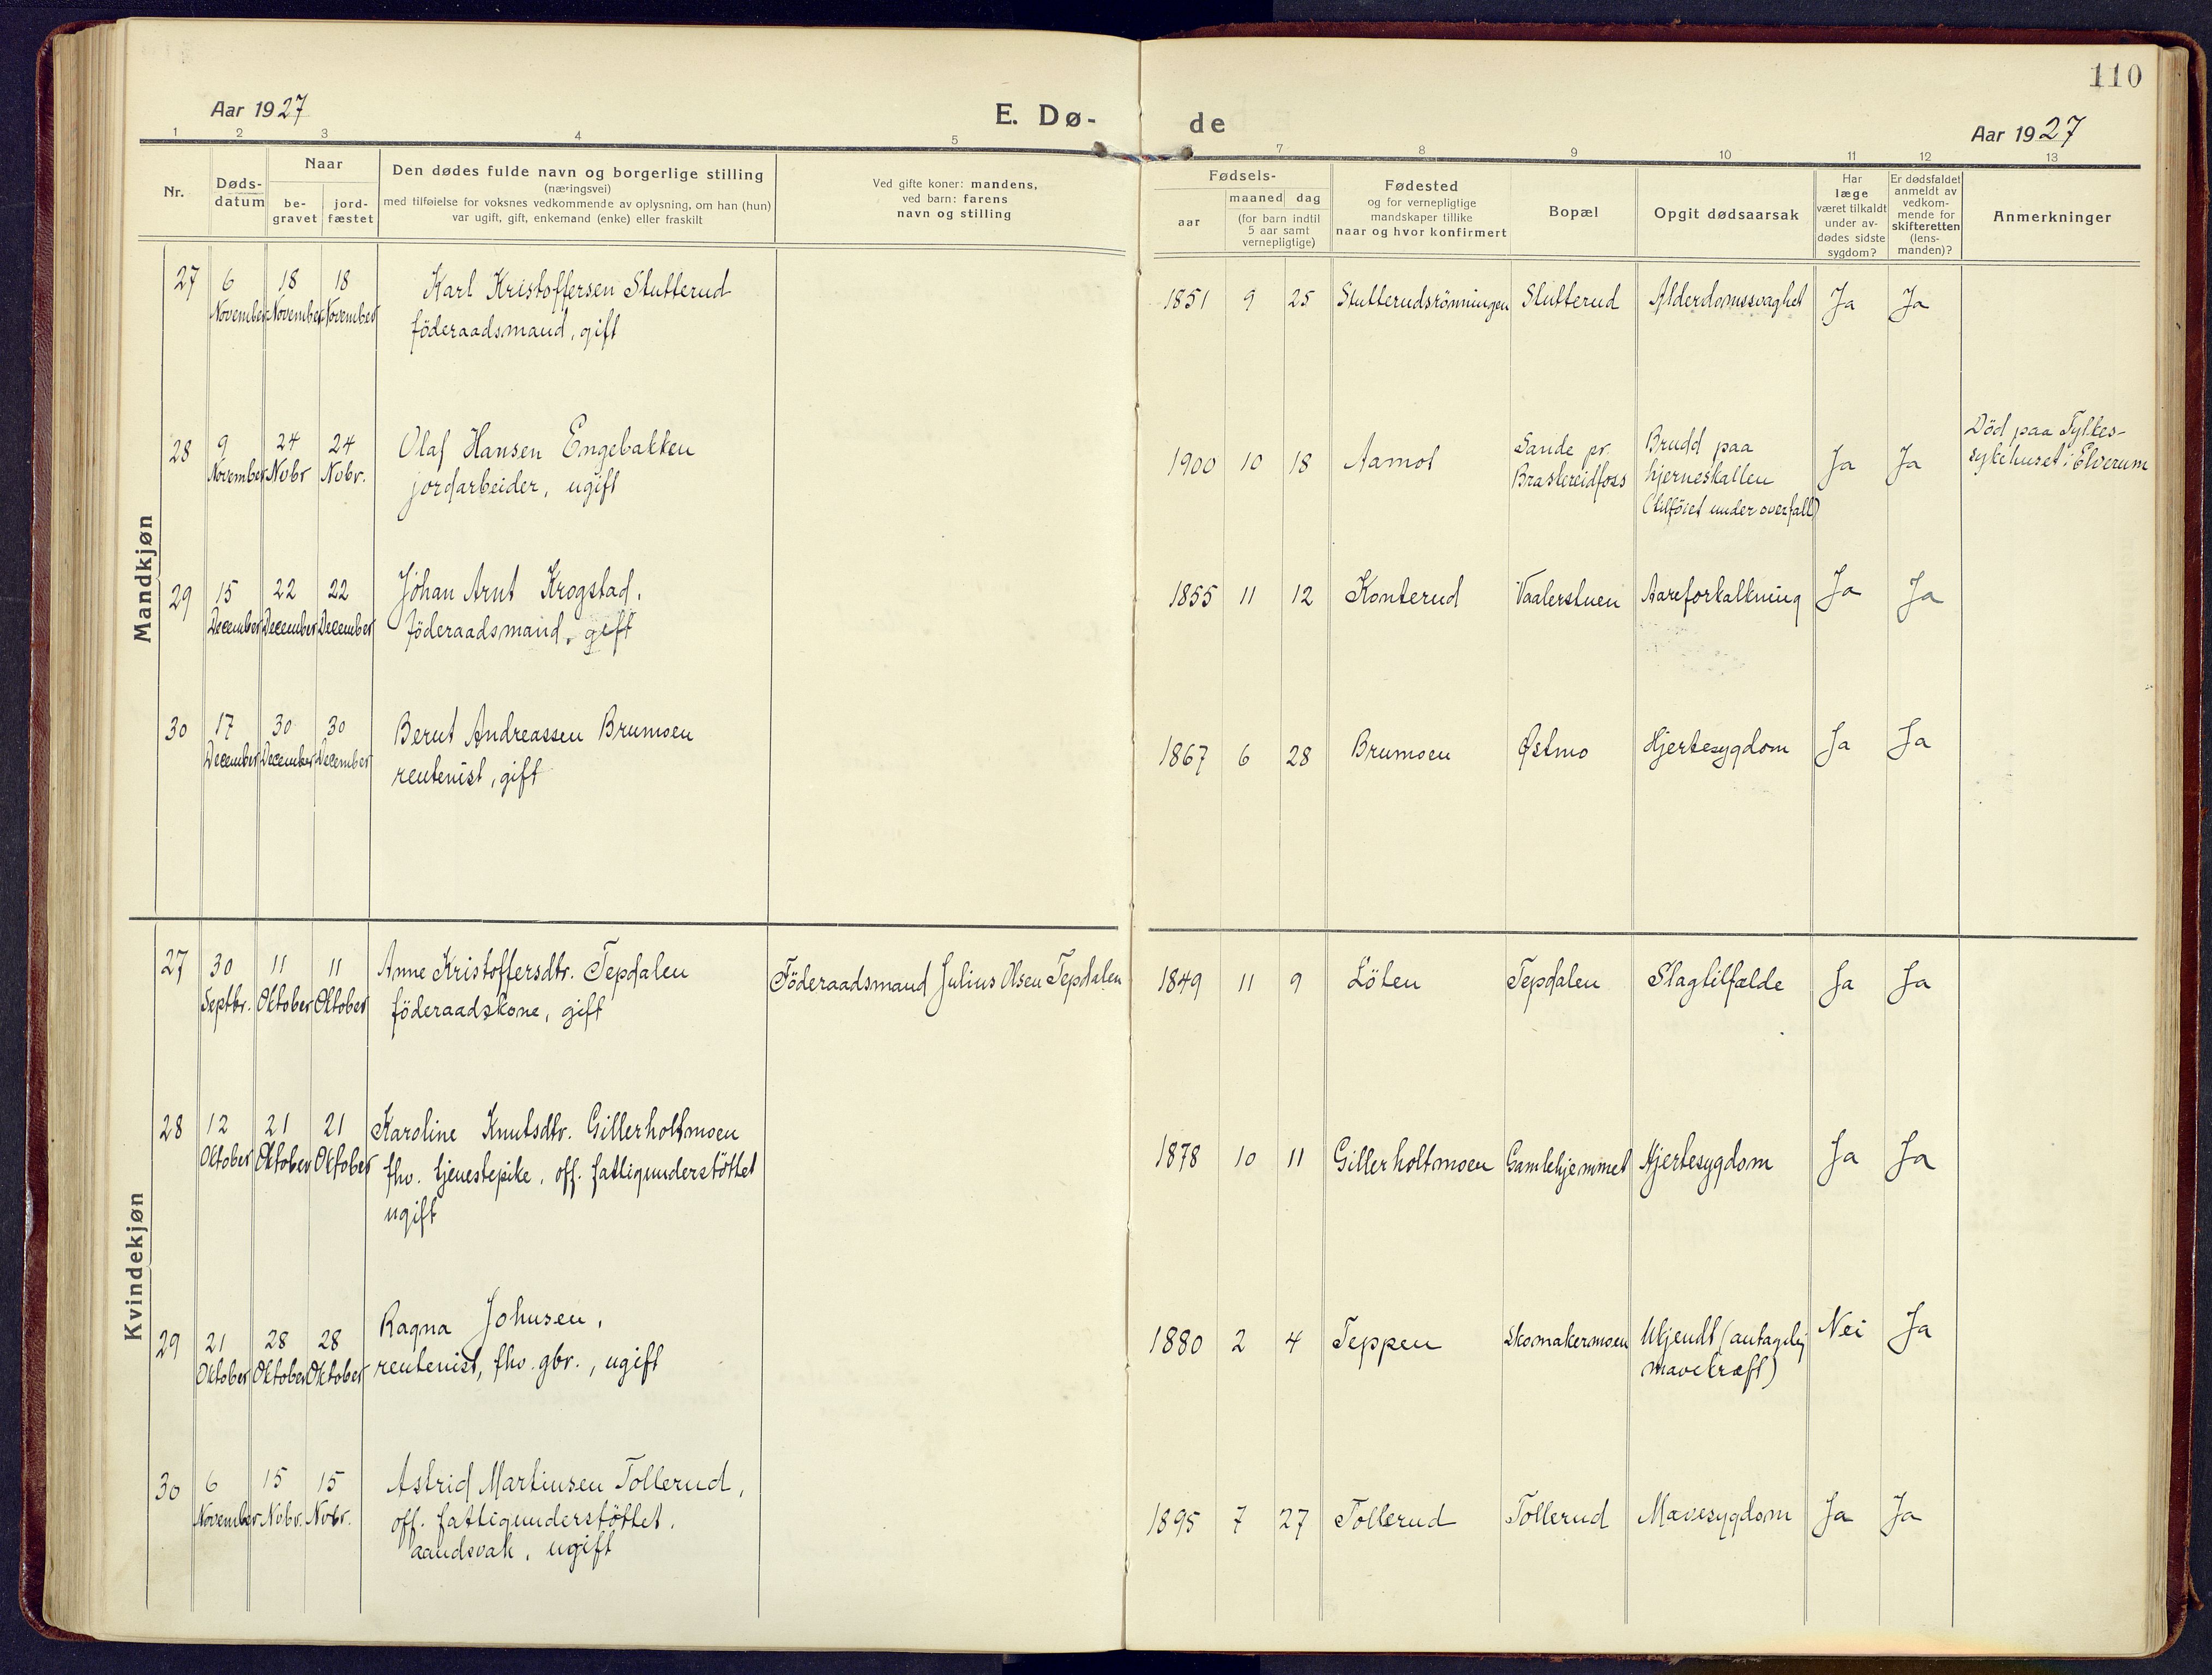 110
Aar 1927
E. Dø-
de
Aar 1927
1 2 3 4 5 7 8 9 10 11 12 13
Nr.
Døds-
datum
Naar
be-
gravet
jord-
fæstet
Den dødes fulde navn og borgerlige stilling
(næringsvei)
med tilføielse for voksnes vedkommende av oplysning, om han (hun)
var ugift, gift, enkemand (enke) eller fraskilt
Ved gifte koner: mandens,
ved barn: farens
navn og stilling
Fødsels-
aar
maaned dag
(for barn indtil
5 aar samt
vernepligtige)
Fødested
og for vernepligtige
mandskaper tillike
naar og hvor konfirmert
Bopæl
Opgit dødsaarsak
Har
læge
været tilkaldt
under av-
dødes sidste
sygdom?
Er dødsfaldet
anmeldt av
vedkom-
mende for
skifteretten
(lens-
manden)?
Anmerkninger
Mandkjøn
27 6 18 18 Karl Kristoffersen Stutterud 1851 9 25 Stutterudsrönningen Stutterud Alderdomssvaghet Ja Ja
November November November föderaadsmand, gift
28 9 24 24 Olaf Hansen Engebakken 1900 10 18 Aamot Sande pr. Brudd paa Ja Ja Död paa Fylkes-
November Nobr Nobr. jordarbeider, ugift Braskereidfoss hjerneskallen sykehuset i Elverum
(tilföiet under overfall)
29 15 22 22 Johan Arnt Krogstad, 1855 11 12 Konterud Vaalerstuen Aareforkalkning Ja Ja
December December December föderaadsmand, gift
30 17 30 30 Bernt Andreassen Brumoen 1867 6 28 Brumoen Østmo Hjertesygdom Ja Ja
December December December rentenist, gift
Kvindekjøn
27 30 11 11 Anne Kristoffersdtr. Tepdalen Föderaadsmand Julius Olsen Tepdalen 1849 11 9 Löten Tepdalen Slagtilfælde Ja Ja
Septbr. Oktober Oktober föderaadskone, gift
28 12 21 21 Karoline Knutsdtr. Gillerholtmoen 1878 10 11 Gillerholtmoen Gamlehjemmet Hjertesygdom Ja Ja
Oktober Oktober Oktober fhv. tjenestepike, off. fattigunderstöttet
ugift
29 21 28 28 Ragna Johnsen, 1880 2 4 Teppen Skomakermoen Ukjendt (antagelig Nei Ja
Oktober Oktober Oktober rentenist, fhv. gbr., ugift mavekræft)
30 6 15 15 Astrid Martinsen Tollerud, 1895 7 27 Tollerud Tollerud Mavesygdom Ja Ja
November Nobr. Nobr. off. fattigunderstöttet,
aandsvak, ugift